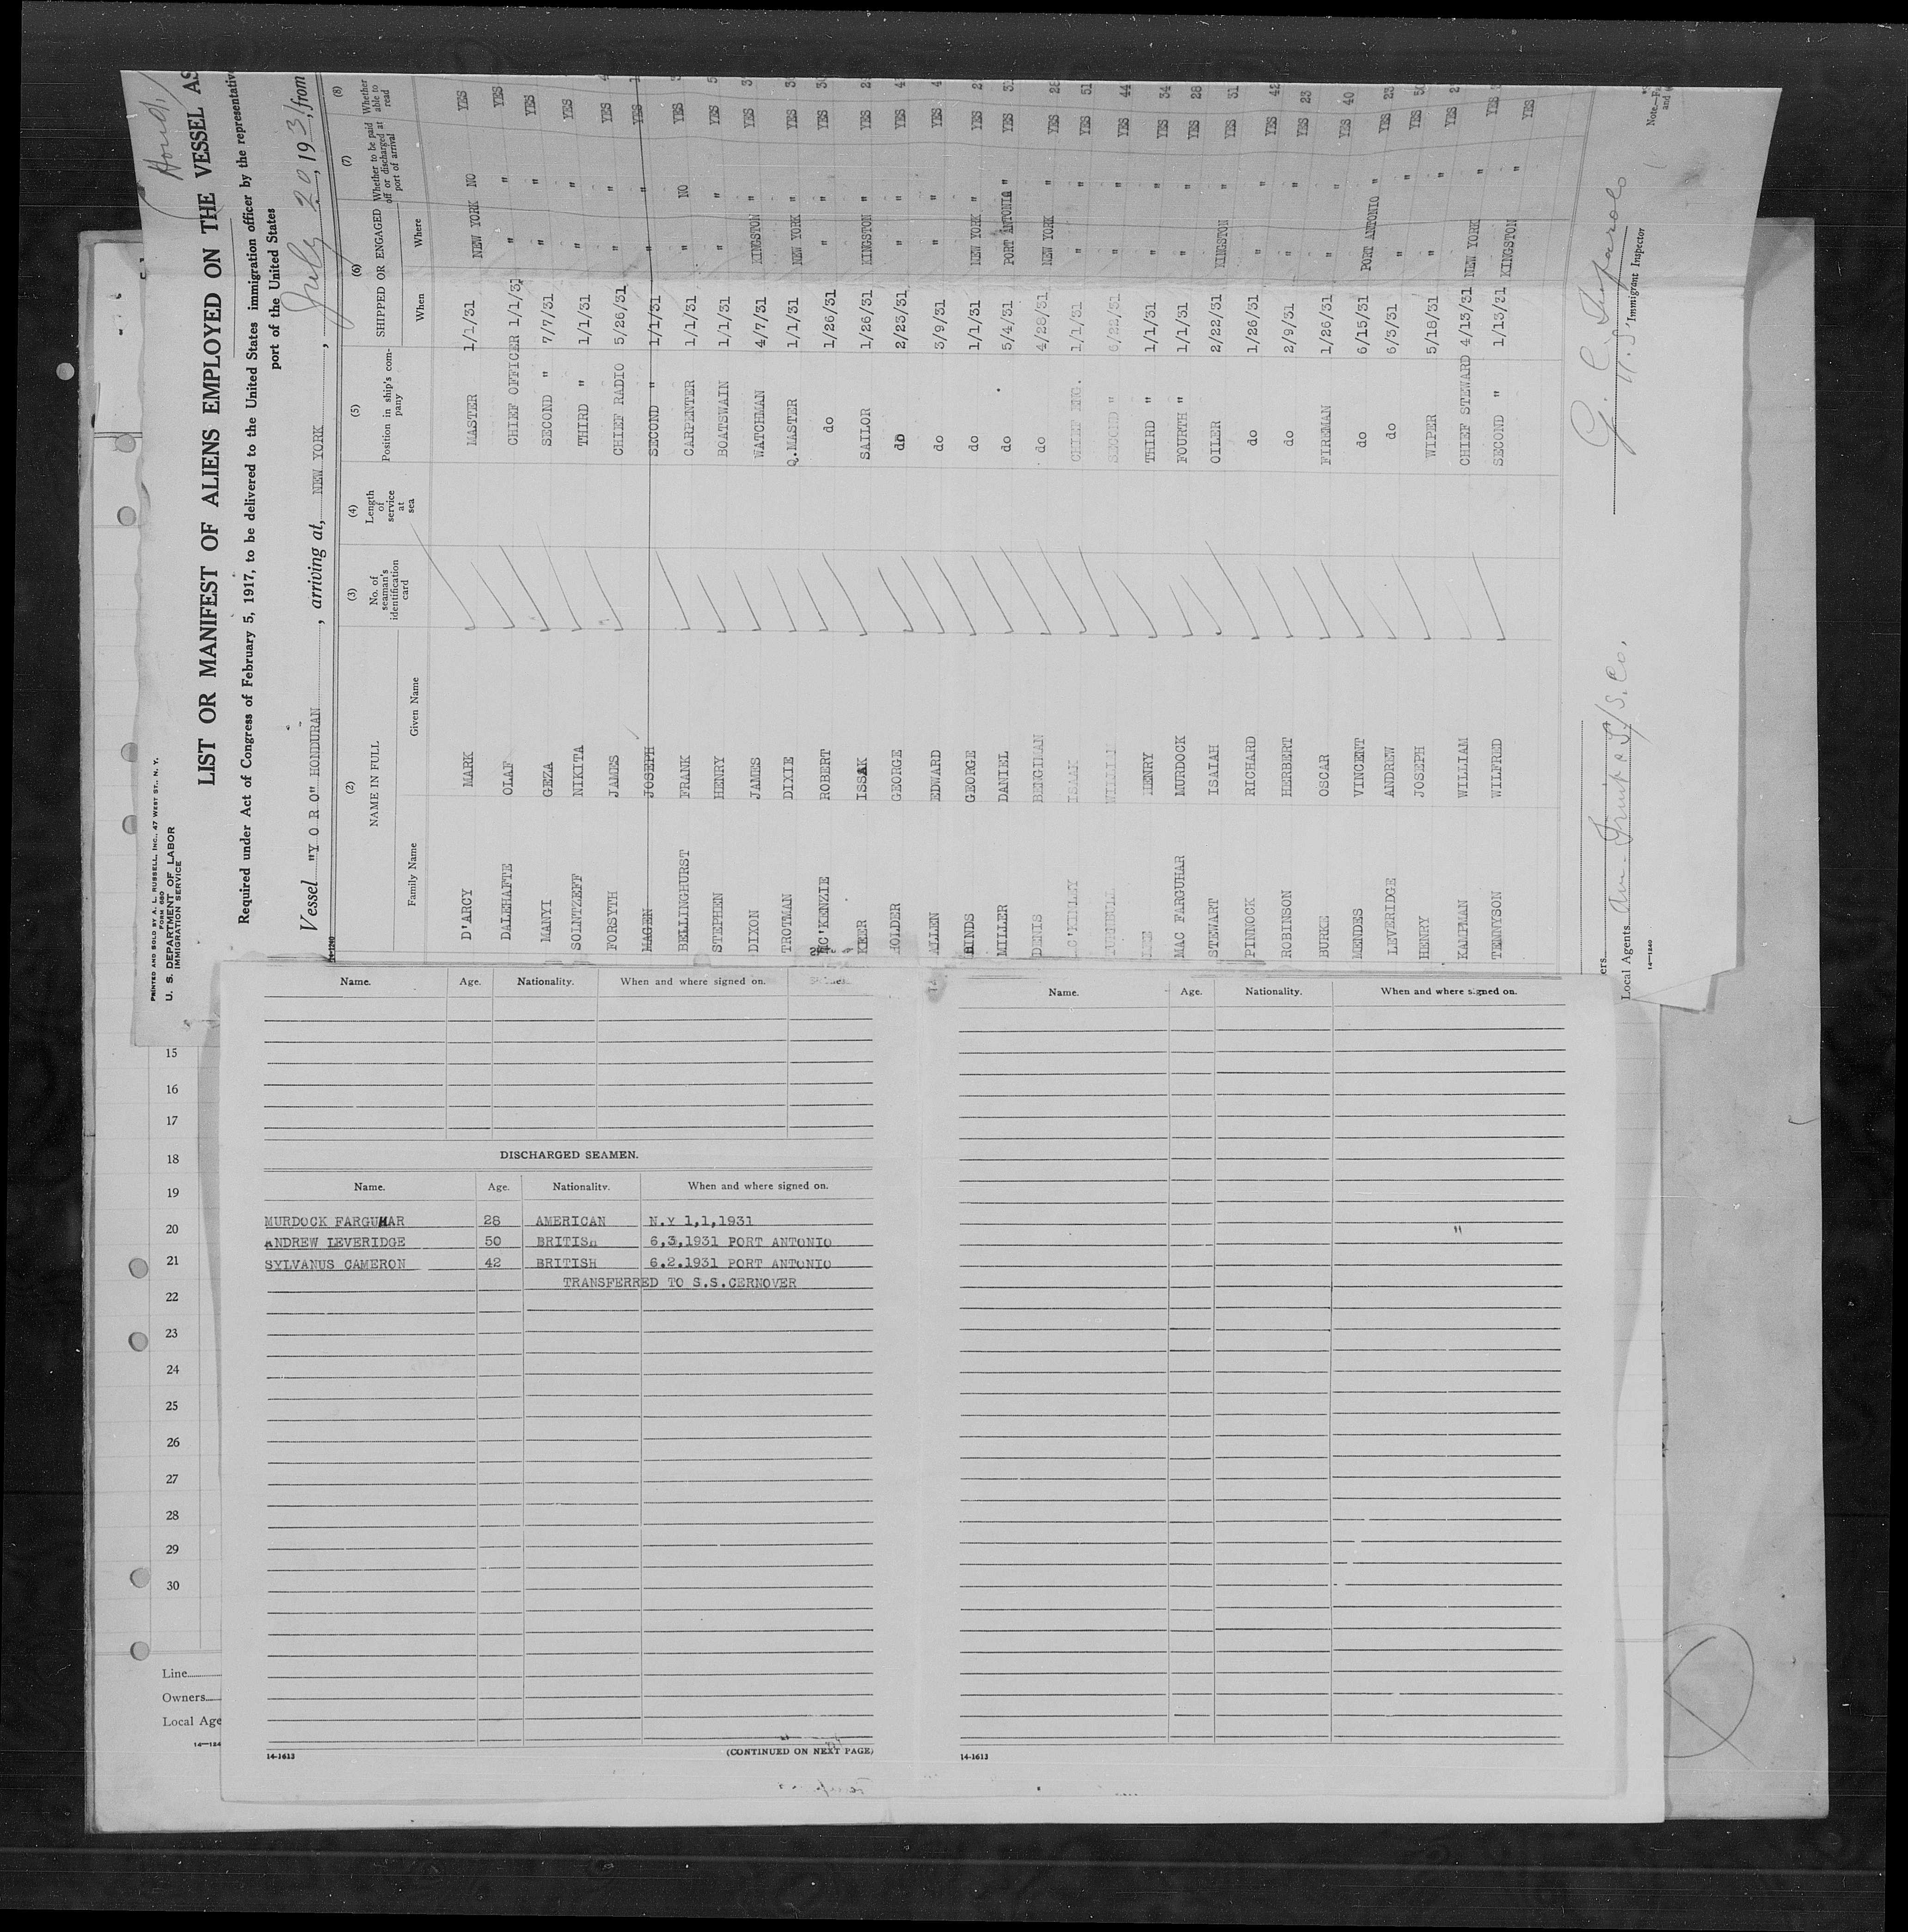 PRINTED AND SOLD BY A. L. RUSSELL, INC., 47 WEST ST., N. Y.
FORM 680
U. S. DEPARTMENT OF LABOR
IMMIGRATION SERVICE
LIST OR MANIFEST OF ALIENS EMPLOYED ON THE VESSEL AS
Required under Act of Congress of February 5, 1917, to be delivered to the United States immigration officer by the representative
port of the United States
Vessel "Y O R O" HONDURAN, arriving at, NEW YORK, July 20, 1931, from
14-1240
(2) (3) (4) (5) (6) (7) (8)
NAME IN FULL No. of seaman's identification card Length of service at sea Position in ship's company SHIPPED OR ENGAGED Whether to be paid off or discharged at port of arrival Whether able to read
Family Name Given Name When Where
D'ARCY MARK MASTER 1/1/31 NEW YORK NO YES
DALEHAFTE OLAF CHIEF OFFICER 1/1/31 " " YES
MANYI GEZA SECOND " 7/7/31 " " YES
SOLNTZEFF NIKITA THIRD " 1/1/31 " " YES
FORSYTH JAMES CHIEF RADIO 5/26/31 " " YES
HAGEN JOSEPH SECOND " 1/1/31 " " YES
BELLINGHURST FRANK CARPENTER 1/1/31 " NO YES
STEPHEN HENRY BOATSWAIN 1/1/31 " " YES
DIXON JAMES WATCHMAN 4/7/31 KINGSTON " YES
TROTMAN DIXIE Q.MASTER 1/1/31 NEW YORK " YES
MC'KENZIE ROBERT do 1/26/31 " " YES
KEER ISSAK SAILOR 1/26/31 KINGSTON " YES
HOLDER GEORGE do 2/23/31 " " YES
ALLEN EDWARD do 3/9/31 " " YES
HINDS GEORGE do 1/1/31 NEW YORK " YES
MILLER DANIEL do 5/4/31 PORT ANTONIA " YES
DENIS BENGIMAN do 4/28/31 NEW YORK " YES 28
MC'KINLEY ISAAK CHIEF ENG. 1/1/31 " " YES 51
WILLIAM SECOND " 6/22/31 " " YES 44
LEE HENRY THIRD " 1/1/31 " " YES 34
MAC FARGUHAR MURDOCK FOURTH " 1/1/31 " " YES 28
STEWART ISAIAH OILER 2/22/31 KINGSTON " YES 31
PINNOCK RICHARD do 1/26/31 " " YES 42
ROBINSON HERBERT do 2/9/31 " " YES 23
BURKE OSCAR FIREMAN 1/26/31 " " YES 40
MENDES VINCENT do 6/15/31 PORT ANTONIO " YES 23
LEVERIDGE ANDREW do 6/3/31 " " YES 50
HENRY JOSEPH WIPER 5/18/31 " " YES
KAMPMAN WILLIAM CHIEF STEWARD 4/13/31 NEW YORK " YES
TENNYSON WILFRED SECOND " 1/13/31 KINGSTON " YES
U.S. Immigrant Inspector
Note.—
and
ers
Local Agents Am Fruit & S/S. Co.
14—1240
Name. Age. Nationality. When and where signed on.
DISCHARGED SEAMEN.
Name. Age. Nationality. When and where signed on.
MURDOCK FARGUHAR 28 AMERICAN N.Y 1,1,1931
ANDREW LEVERIDGE 50 BRITISH 6,3,1931 PORT ANTONIO
SYLVANUS CAMERON 42 BRITISH 6.2.1931 PORT ANTONIO
TRANSFERRED TO S.S.CERNOVER
14-1613
(CONTINUED ON NEXT PAGE)
Name. Age. Nationality. When and where signed on.
"
14-1613
15
16
17
18
19
20
21
22
23
24
25
26
27
28
29
30
Line
Owners
Local Age
14—124